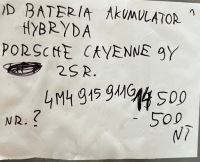 ID BATERIA AKUMULATOR
HYBRYDA
PORSCHE CAYENNE 9Y
25R.
4M4 915 911G 14 500
NR.? - 500
NT